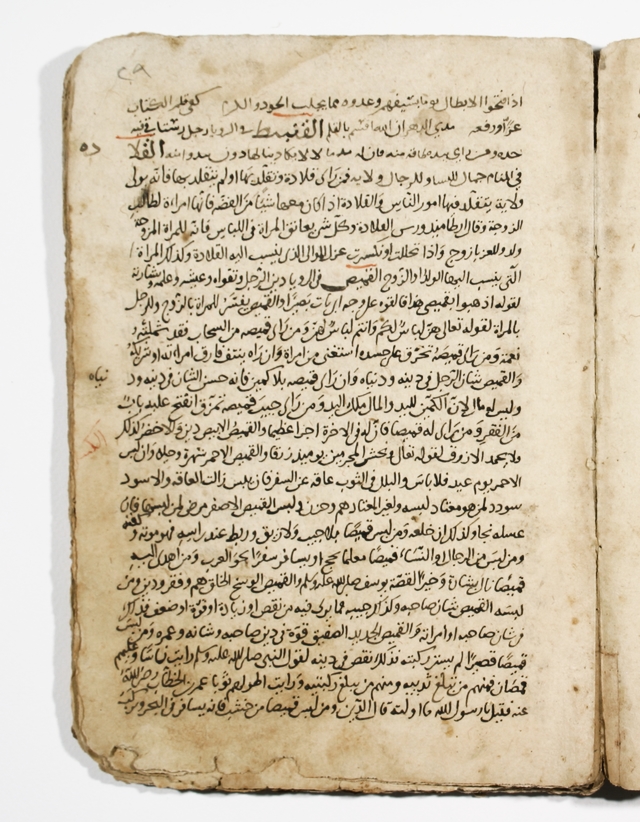 ٢٩
اذا فتحوا الابطال يوما بسيفهم وعدوه مما يجلب الجود والكرم كفى قلم الكتاب
عزا ورفعة مدى الدهر ان الله اقسم بالقلم في الرويا رجل
في المنام جمال للنساء وللرجال ولاية فمن راى قلادة وتقلد بها اولم يتقلد بها فانه يولى
ولاية يتقلد فيها امور الناس والقلادة اذا كان معها شيا من الفضة فانها امراة لطالب
الزوجة وقال ارطاميدورس القلادة وكل شي يعانق المراة في اللباس فانه للمراة المزوجة
ولد وللعزبا زوج واذا تحللت او تكسرت عزل الوالي الذي ينسب اليه القلادة وكذلك المراة
التي ينسب اليها الولد او الزوج القميص في الرويا دين الرجل وتقواه وعيشه وعلمه وبشارته
لقوله اذهبوا بقميصي هذا فالقوه على وجه ابي يات بصيرا والقميص يفسر للمراة بالزوج وللرجل
بالمراة لقوله تعالى هن لباس لكم وانتم لباس لهن ومن راى قميصه من السحاب فقد شملته
نعمة ومن راى قميصه تخرق على جسده استغنى من امراة وان راه ينتف فارق امراته او شريكه
والقميص شان الرجل في دينه ودنياه وان راى قميصه بلا كمين فانه حسن الشان في دينه ود
نياه
وليس له مال لان الكمين لليد والمال ملك اليد ومن راى جيب قميصه تمزق انفتح عليه باب
من الفقر ومن راى له قمصا فان له في الاخرة اجرا عظيما والقميص الابيض دين والاخضر كذلك
ولا يحمد الازرق لقوله تعالى ونحشر المجرمين يوميذ زرقا والقميص الاحمر شهرة
الاحمر يوم عيد فلا باس والبلل في الثوب عاقة عن السفر فان يبس زالت العاقة والاسود
سودد لمن هو معتاد لبسه ولغير المعتاد هم وحزن ولبس القميص الاصفر مرض
غسله نجا وكذلك ان خلعه ومن لبس قميصا بلا جيب ولا زيق وربط عند راسه فهو موته
ومن لبس من الرجال او النساء قميصا معلما يحج او يسافر سفرا نحو العرب ومن اهدى اليه
قميصا نال بشارة وخيرا لقصة يوسف صلى الله عليه وسلم والقميص الوسخ الخلق هم وفقر ودين ومن
لبسه القميص شان صاحبه وكذلك جيبه فما يرى فيه من نقص او زيادة او قوة او ضعف فذلك
في شان صاحبه او امراته والقميص الجديد الصفيق قوة في دين صاحبه وشانه وعمره ومن لبس
قميصا قصيرا لم يستر ركبته فذلك نقص في دينه لقول النبي صلى الله عليه وسلم رايت ناسا وعليهم
قمصان فمنهم من تبلغ ثدييه ومنهم من يبلغ ركبتيه ورايت اطولهم ثوبا عمر بن الخطاب رضي الله
عنه فقيل يا رسول الله ما اولته قال الدين ومن لبس قميصا من خشب فانه يسافر في البحر